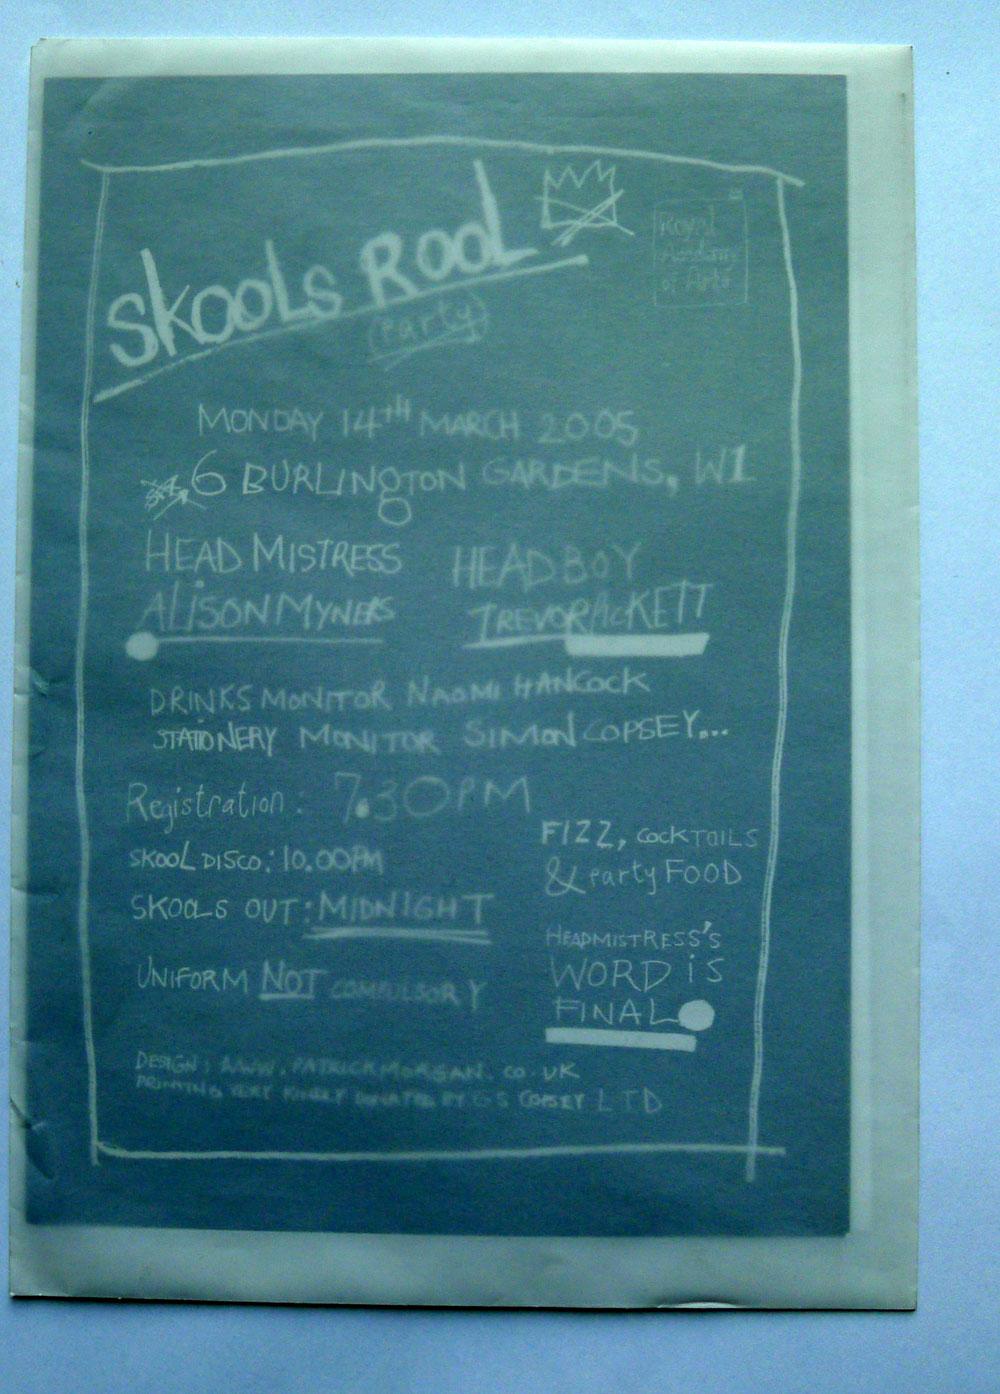 SKOOLS ROOL
Royal
Academy
of Arts
(Party)
MONDAY 14TH MARCH 2005
6 BURLINGTON GARDENS, W1
HEAD MISTRESS
ALISON MYNERS
HEAD BOY
TREVOR RACKETT
DRINKS MONITOR NAOMI HANCOCK
STATIONERY MONITOR SIMON COPSEY...
Registration: 7.30PM
SKOOL DISCO: 10.00PM
SKOOLS OUT: MIDNIGHT
UNIFORM NOT COMPULSORY
FIZZ, COCKTAILS
& PartY FOOD
HEADMISTRESS'S
WORD iS
FINAL
DESIGN: WWW.PATRICKMORGAN.CO.UK
PRINTING VERY KINDLY DONATED BY G S COPSEY LTD